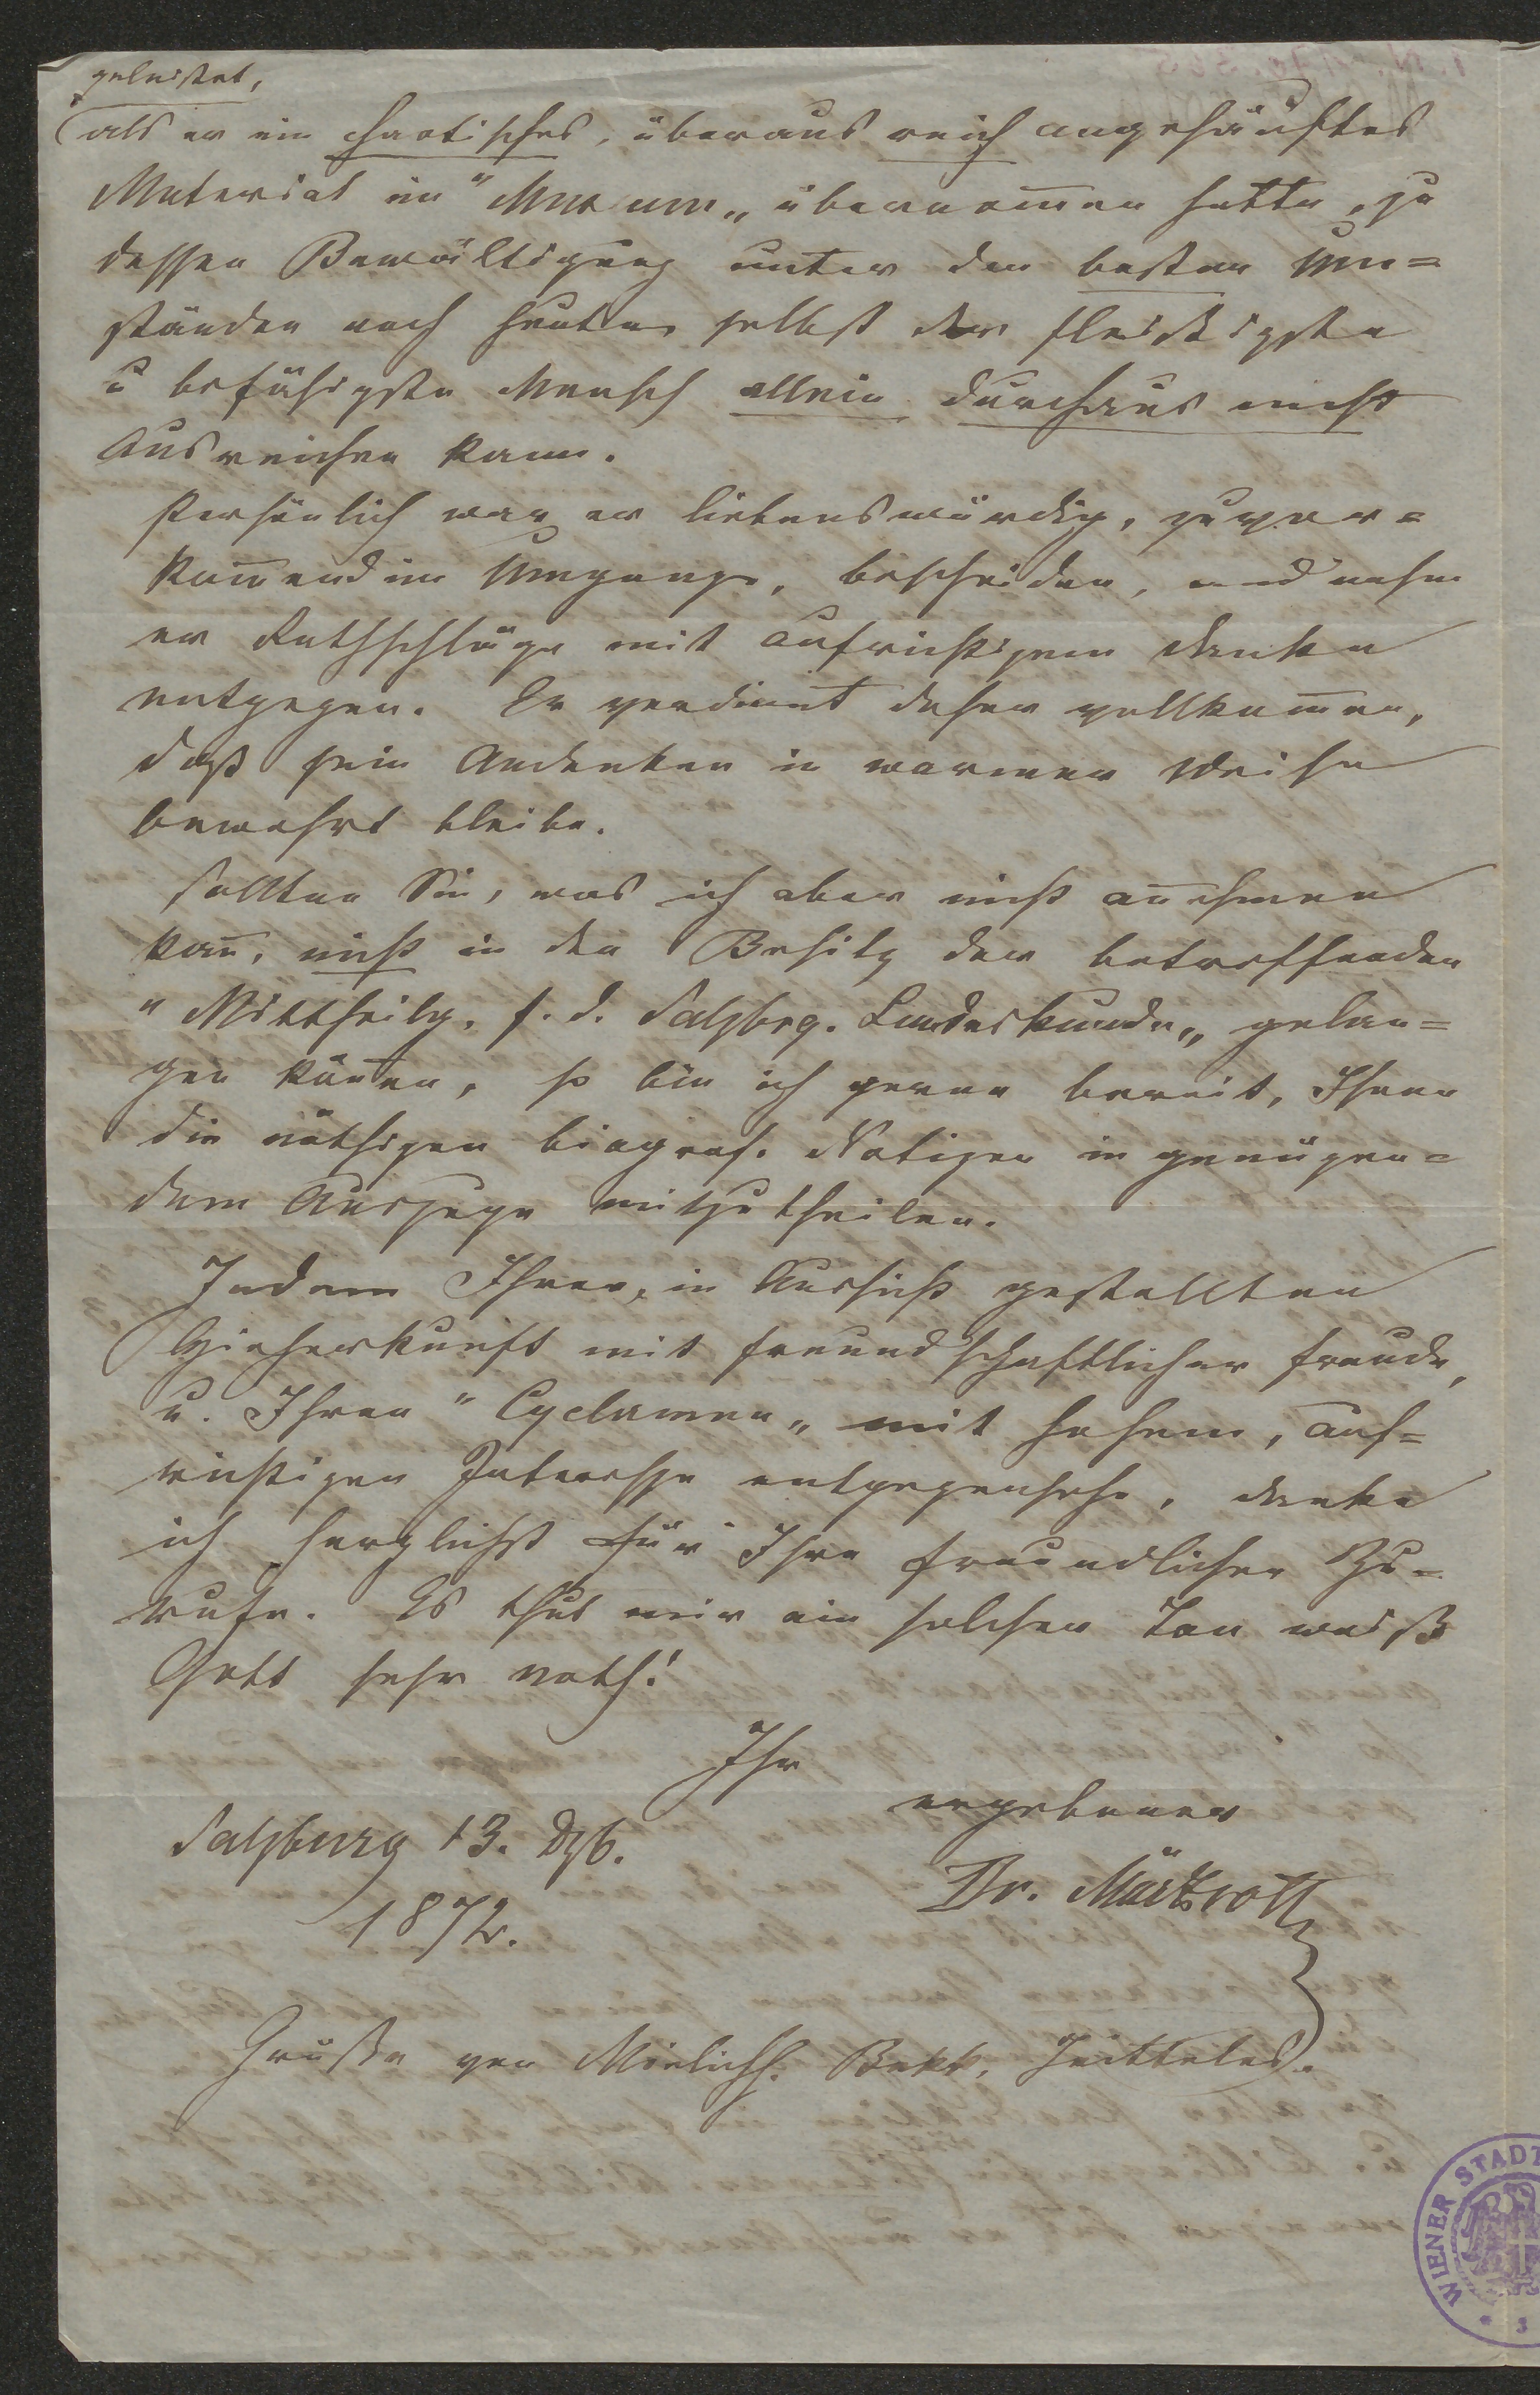 geleistet,
als er ein chaotisches, überaus reich angehäuftes
Material im "Museum" übernom̄en hatte, zu
dessen Bewältigung unter den besten Um=
ständen noch heute selbst der fleißigste
u befähigste Mensch allein durchaus nicht
ausreichen kann.
Persönlich war er liebenswürdig, zuvor=
kom̄end im Umgange, bescheiden, und nahm
er Rathschläge mit aufrichtigem Danke
entgegen. Er verdient daher vollkom̄en,
daß sein Andenken in warmer Weise
bewahrt bleibe.
Sollten Sie, was ich aber nicht an̄ehmen
kan̄, nicht in den Besitz der betreffenden
"Mittheilg. f. d. Salzbrg. Landeskunde" gelan=
gen kön̄en, so bin ich gerne bereit, Ihnen
die nöthigen biograf. Notizen in genügen=
dem Auszuge mitzutheilen.
Indem Ihrer, in Aussicht gestellten
Hieherkunft mit freundschaftlicher Freude,
u. Ihren "Cyclamen" mit hohem, auf=
richtigen Interesse entgegensehe, danke
ich herzlichst für Ihre freundlichen Zu=
rufe. Es thut mir ein solcher Ton weiß
Gott sehr noth!
Ihr
ergebener
Salzburg 13. Dzb.
Dr. Märzroth
1872.
Grüße von Mielichh. Bekk, Jeitteles.
WIENER STADT